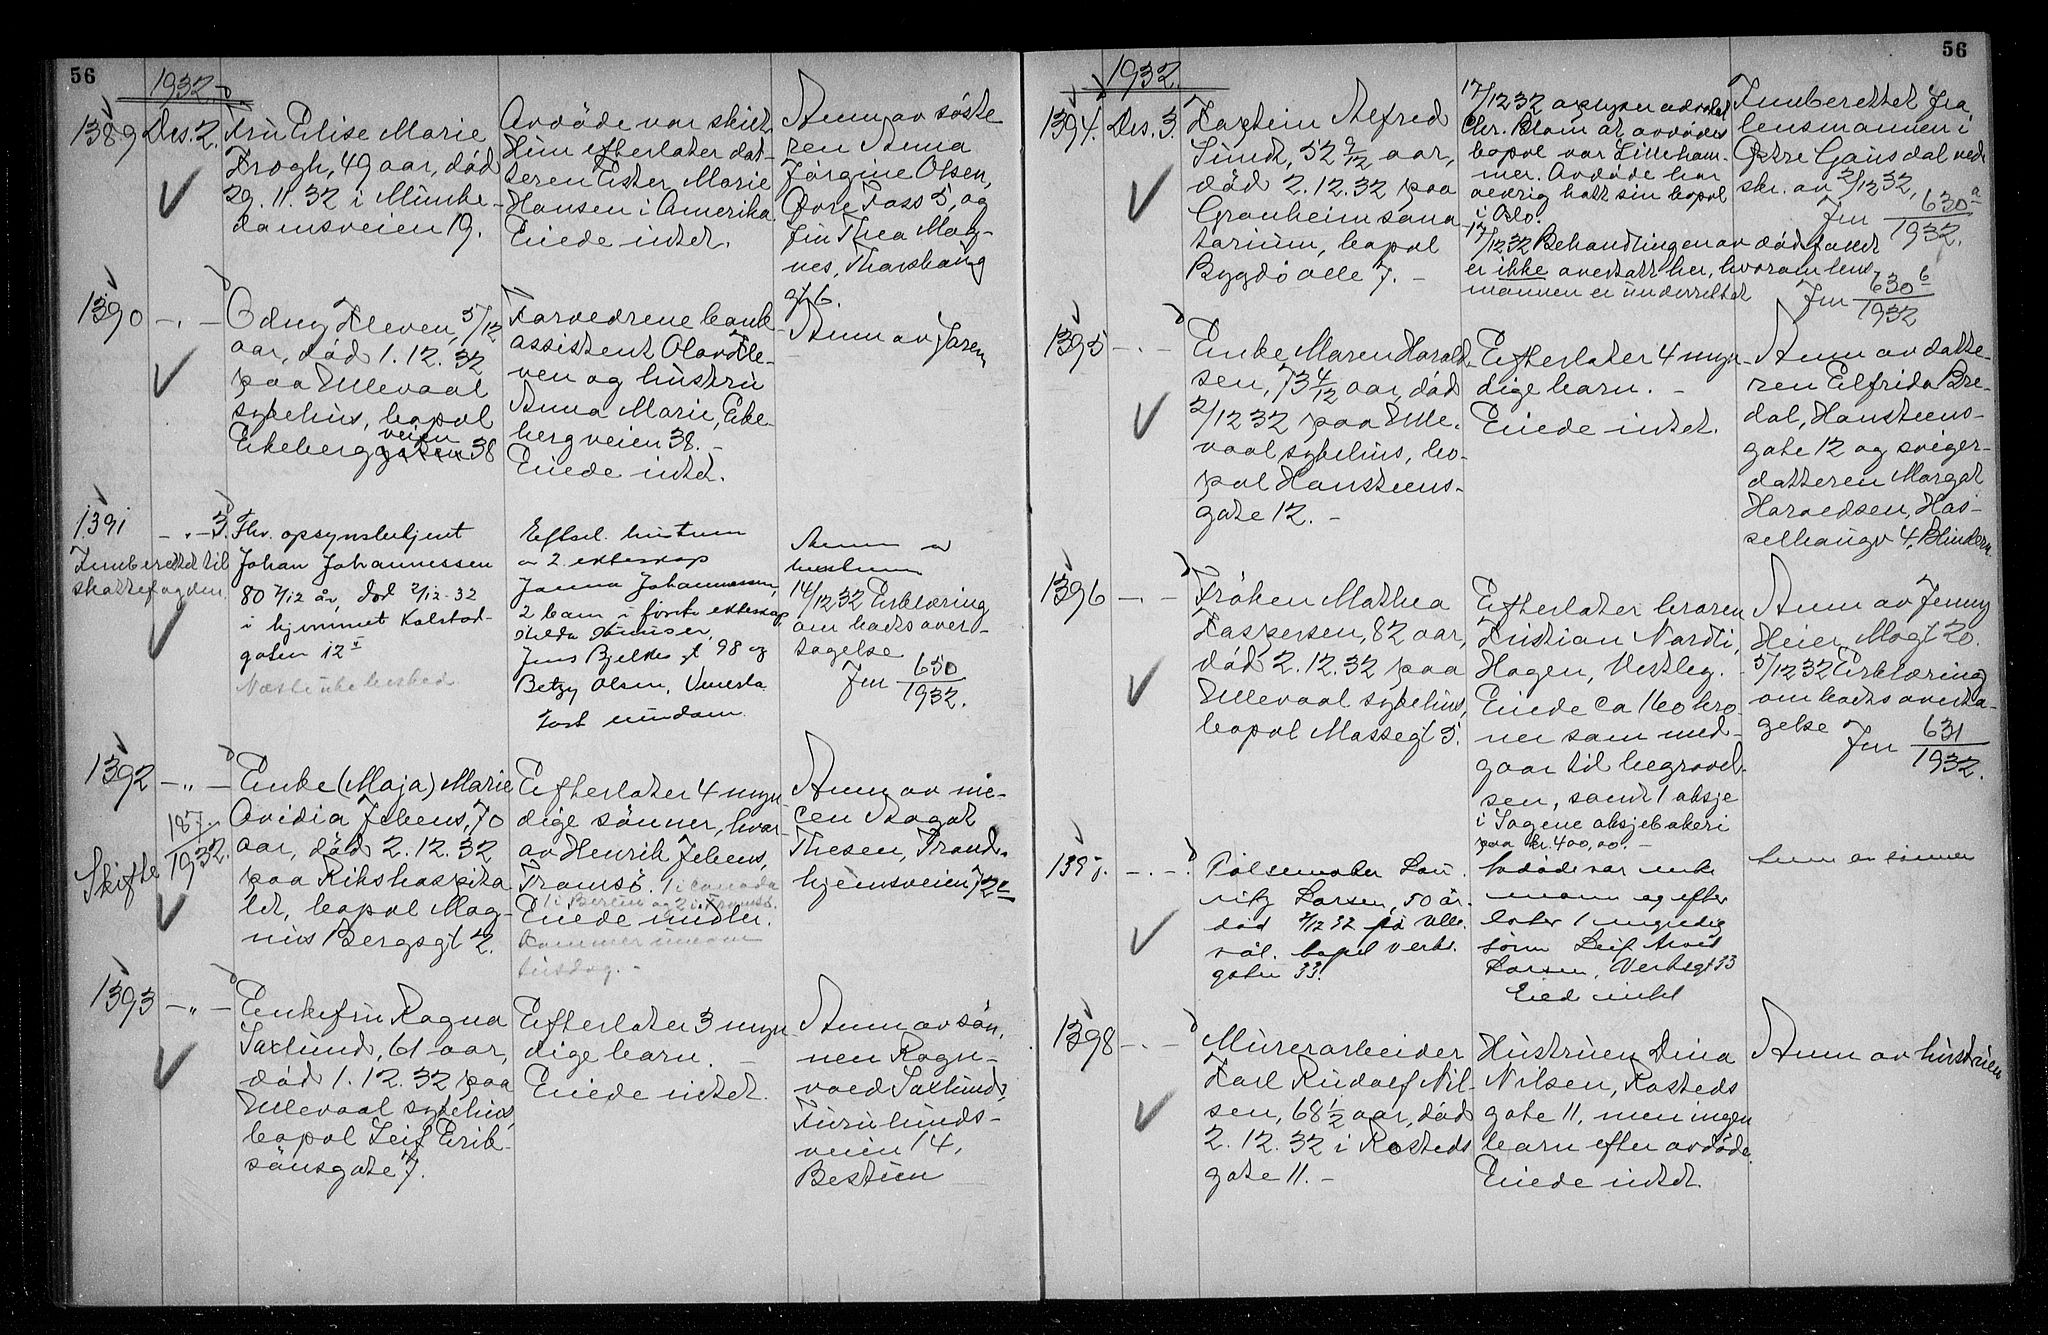 56
1932.
1389 Des. 2.
Fru Elise Marie
Krogh, 49 aar, död
29.11.32 i Munke-
damsveien 19.
Avdöde var skilt
Hun efterlater dat-
teren Ester Marie
Hansen i Amerika.
Eiede intet.
Anm av söste
ren Anna
Jörgine Olsen,
Övre Foss 5, og
fru Thea Mag-
nes, Thorshaug
gt 6.
1390 -„-
Odny Kleven, 5/12
aar, död 1.12.32
paa Ullevaal
sykehus, bopæl
Ekeberggaten veien 38
Forældrene bank-
assistent Olav Kle-
ven og hustru
Anna Marie, Eke-
bergveien 38. -
Eiede intet.
Anm av faren
1391 -„- 3.
Innberettet til
skattefogden.
Fhv. opsynsbetjent
Johan Johannessen
80 7/12 år, död 2/12-32
i hjemmet Kalstad-
gaten 12 I
Efterl. hustrum
av 2 ekteskap
Janna Johannessen,
2 barn i förste ekteskap
Hilda
Jens Bjelkes gt 98 og
Betzy Olsen, Venesla
Anm av
hustruen
14/12 32 Erklæring
om boets over-
tagelse
Jnr 650/1932.
1392 -„-
Skifte 187/1932.
Enke (Maja) Marie
Ovidia Jebens, 70
aar, död 2.12.32
paa Rikshospita
let, bopæl Mag-
nus Bergsgt 2.
Efterlater 4 myn
dige sönner, hvor-
av Henrik Jebens,
Tromsö. 1 i Canada
1 i Berlin og 2 i Tromsö.
Eiede midler.
Kommer innom
tirsdag. -
Anm av nie-
cen Aagot
Thesen, Trond-
hjemsveien 72 c
1393 -„-
Enkefru Ragna
Saxlund, 61 aar,
död 1.12.32 paa
Ullevaal sykehus,
bopæl Leif Erik-
sönsgate 7.
Efterlater 3 myn
dige barn. -
Eiede intet.
Anm av sön-
nen Ragn-
vald Saxlund,
Furulunds-
veien 14,
Bestun
56
1932.
1394. Des. 3.
Kaptein Alfred
Sundt, 52 9/12 aar,
död 2.12.32 paa
Granheim sana
torium, bopæl
Bygdö alle 7. -
17/12 32 oplyser advokat
Chr. Blom at avdödes
bopæl var Lilleham-
mer. Avdöde har
aldrig hatt sin bopæl
i Oslo.
17/12 32 Behandlingen av dödsfallet
er ikke overtatt her, hvorom lens
mannen er underrettet
Innberettet fra
lensmannen i
Östre Gausdal ved
skr. av 2/12 32,
Jnr 630 a/1932.
Jnr 630 b/1932
1395 -„-
Enke Maren Harald
sen, 73 4/12 aar, död
2/12 32 paa Ulle-
vaal sykehus, bo-
pæl Hansteens-
gate 12. -
Efterlater 4 myn-
dige barn. -
Eiede intet.
Anm av datte-
ren Elfrida Bre-
dal, Hansteens-
gate 12 og sviger-
datteren Margit
Haraldsen, Has-
selhaugv 4, Blindern.
1396 -„-
Fröken Mathea
Kaspersen, 82 aar,
död 2.12.32 paa
Ullevaal sykehus,
bopæl Mossegt 5.
Efterlater broren
Kristian Nordli,
Hagen, Vestby.
Eiede ca 160 kro
ner som med-
gaar til begravel-
sen, samt 1 aksje
i Sagene aksjebakeri
paa kr. 400,00. -
Anm av Jenny
Heier, Mogt 20.
5/12 32 Erklæring
om boets overta-
gelse
Jnr 631/1932.
1397. -„-
Pölsemaker Lau
ritz Larsen, 50 år.
död 2/12 32 på Ulle
vål. bopæl Verks-
gaten 33.
Avdöde var enke
mann og efter
later 1 myndig
sönn Leif Arvid
Larsen, Verksgt 33
Eied intet
Anm av sönnen
1398 -„-
Murerarbeider
Karl Rudolf Nil-
sen, 68 1/2 aar, död
2.12.32 i Rosteds
gate 11. -
Hustruen Dina
Nilsen, Rosteds
gate 11, men ingen
barn efter avdöde.
Eiede intet.
Anm av hustruen